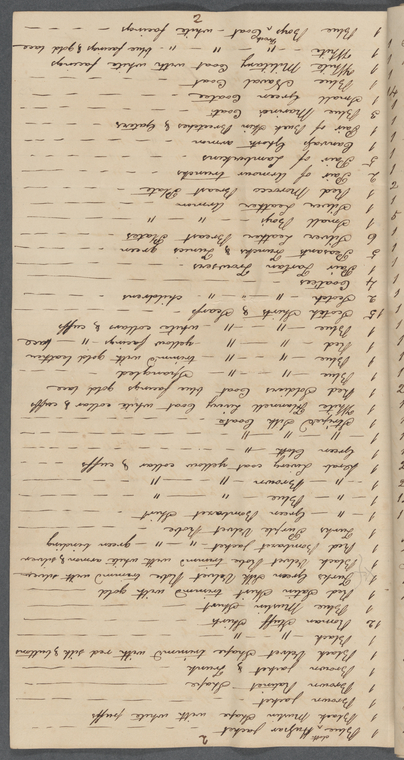 2
1 Blue cloth Hussar jacket
1 Black Muslin Shape with white puffs
1 Brown jacket
1 Brown Shape
1 Brown jacket & Trunk
1 Black Velvet Shape trimmd with red silk & buttons
1 Black " "
12 Roman Stuff Shirts
1 Blue Muslin Shirt
1 Red Satin Shirt trimmd with gold
1 Turks Green Silk Velvet Robe trimmd with silver
1 Black Velvet Robe trimmd with white & silver
1 Red Bombazet Jacket green binding
1 Turks Purple Velvet Robe
1 " Green Bombazet Shirt
1 " Blue "
1 " Brown "
1 Drab Livery coat yellow collar & cuffs
1 Green Cloth "
1 " "
1 Striped Silk Coats
1 White Flannell Livery Coat white collar & cuffs
1 Red Soldiers Coat blue facings gold lace
1 Blue " " Spangled
1 Blue " " trimmd with gold leather
1 Red " " yellow facings " lace
1 Blue " " white collars & cuffs
15 Scotch Shirts & Scarfs
2 Scotch " " childrens
4 Coatees
1 Pair Tartan Trowsers
5 Peasants Trunks & Tunics green
6 Silver Leather Breast Plates
1 Small Boys " "
1 Silver Leather Armour
1 Red Morocco Breast Plate
2 Pair of Armour
5 Pair of Lamberkins
1 Canvass Ghosts armour
1 Pair of Buck Skin Breeches & Gaiters
3 Blue Marines Coats
1 Small Green Coatee
1 Blue Naval Coat
1 White Military Coat with white facings
1 White " " blue facings & gold lace
1 Blue Boys Coat white facings
2